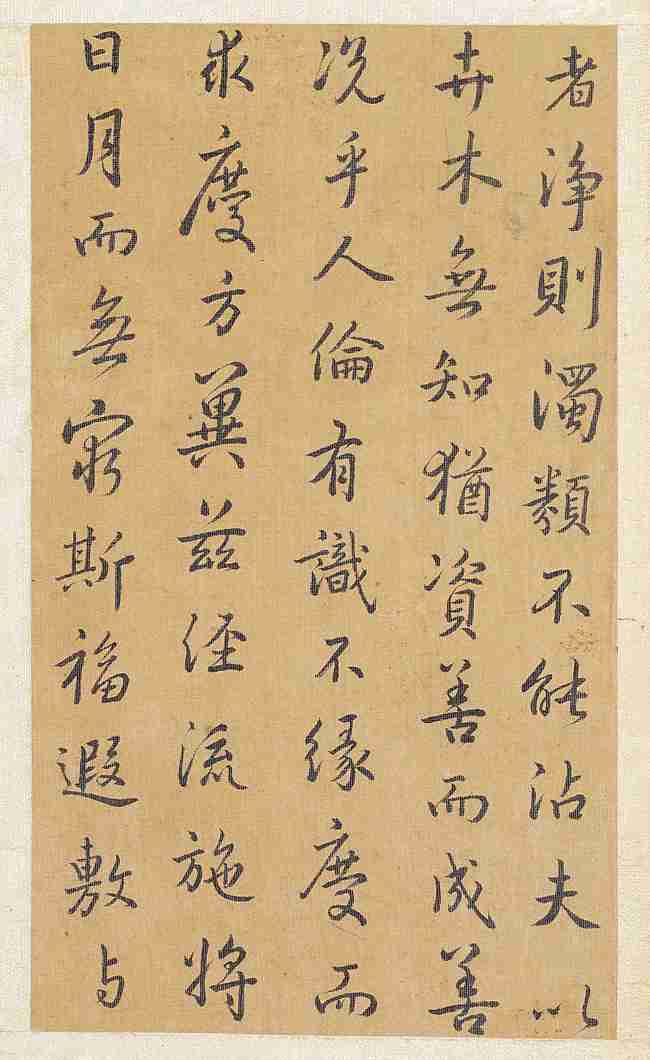 者淨則濁類不能沾夫以
卉木無知猶資善而成善
況乎人倫有識不緣慶而
求慶方冀茲經流施將
日月而無窮斯福遐敷与